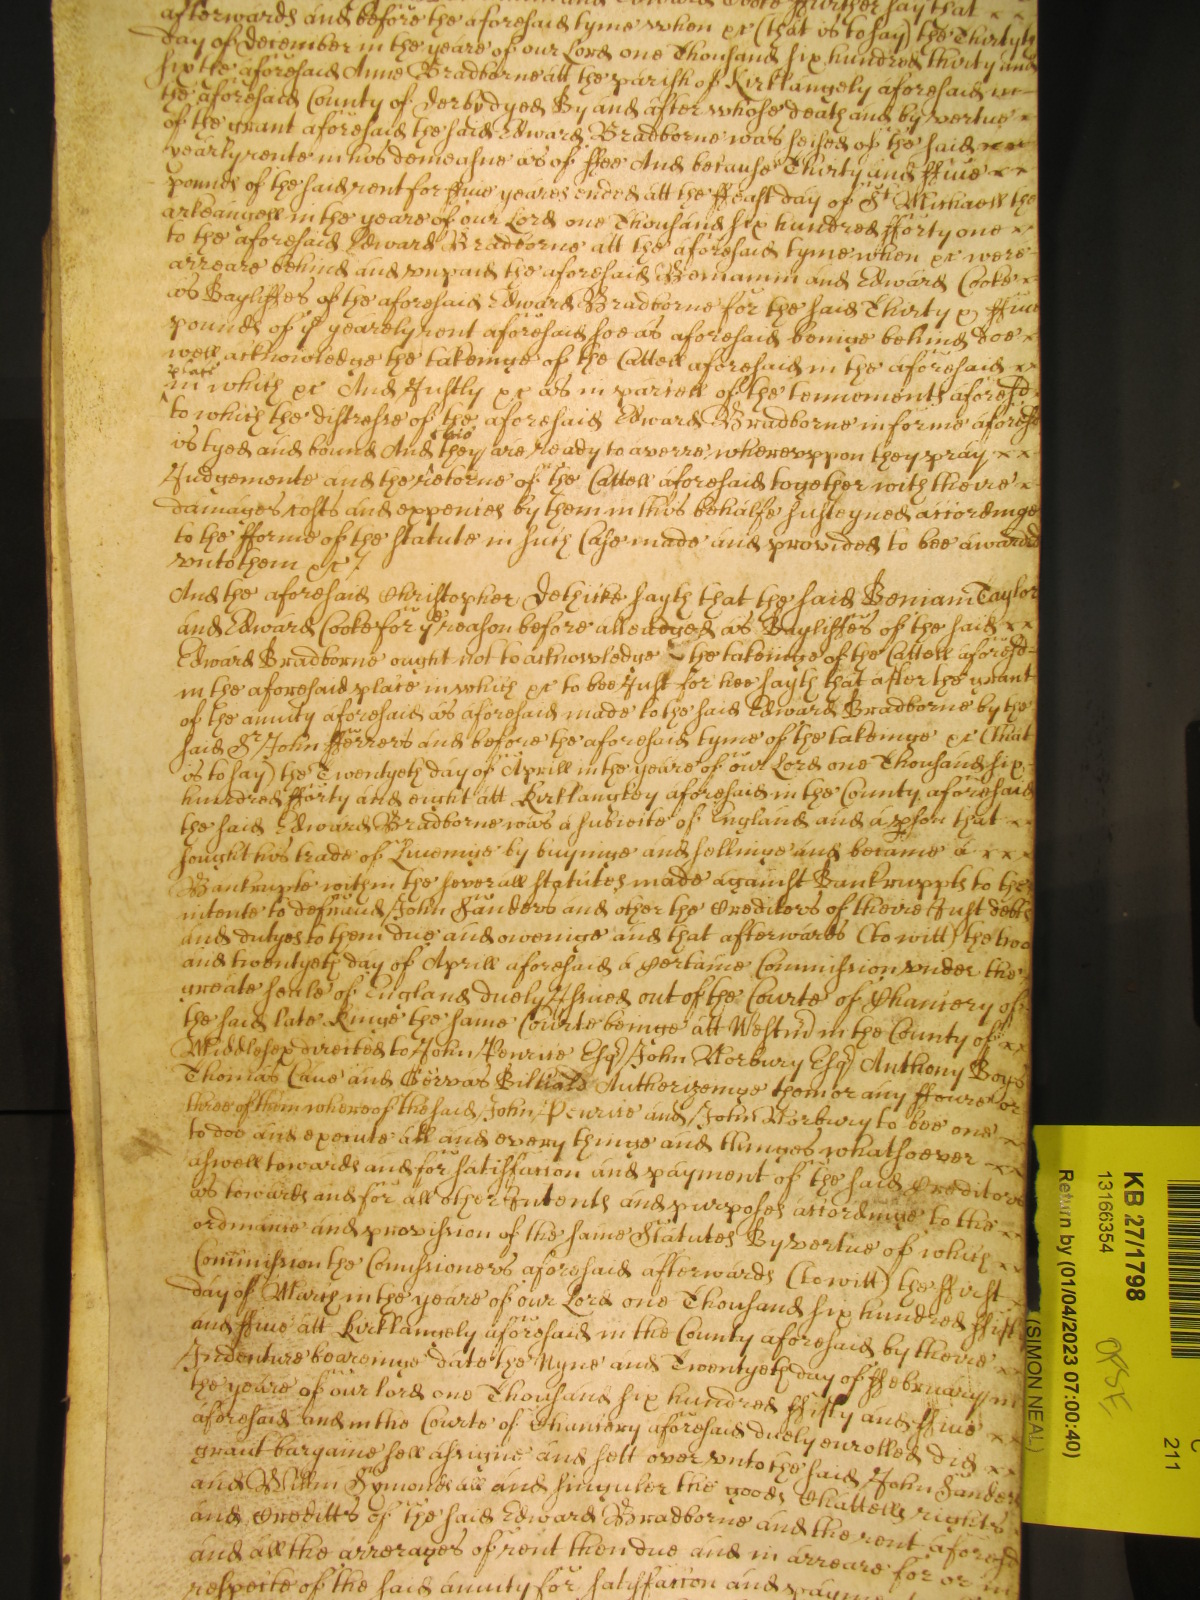 further say that
afterwards and before the aforesaid tyme when &c (that is to say) the Thirtyth
day of december in the yeare of our Lord one Thousand six hundred thirty and
six the aforesaid Anne Bradborne att the parish of Kirklangely aforesaid in
the aforesaid County of derby dyed By and after whose death and by vertue
of the grant aforesaid the said Edward Bradborne was seised of the said
yearly rente in his demeasne as of ffee And because Thirty and ffiue
pounds of the said rent for ffiue yeares ended att the ffeast day of St Michaell the
arkeangell in the yeare of our Lord one Thousand six hundred fforty one
to the aforesaid Edward Bradborne att the aforesaid tyme when &c were
arreare behind and vnpaid the aforesaid Beniamin and Edward Cooke
as Bayliffes of the aforesaid Edward Bradborne for the said Thirty & ffiue
pounds of ye yearely rent aforesaid soe as aforesaid beinge behind doe
well acknowledge the takeinge of the Cattell aforesaid in the aforesaid
place
in which &c And Justly &c as in parcell of the tennements aforesd
to which the distresse of the aforesaid Edward Bradborne in forme aforesd
is tyed and bound And this they are ready to averre wherevppon they pray
Judgemente and the retorne of the Cattell aforesaid together with theire
damages costs and expences by them in this behalfe susteyned accordinge
to the fforme of the statute in such Case made and provided to bee awarded
vnto them &c /
And the aforesaid Christopher Dethicke sayth that the said Beniam Taylor
and Edward Cooke for ye reason before alleadged as Bayliffes of the said
Edward Bradborne ought not to acknowledge the takeinge of the Cattell aforesd
in the aforesaid place in which &c to bee Just for hee sayth that after the grant
of the annity aforesaid as aforesaid made to the said Edward Bradborne by the
said Sr John fferrers and before the aforesaid tyme of the takeinge &c (that
is to say) the Twentyeth day of Aprill in the yeare of our Lord one Thousand six
hundred fforty and eight att Kirklangley aforesaid in the County aforesaid
the said Edward Bradborne was a subiecte of England and a pson that
sought his trade of Liueinge by buyinge and sellinge and became a
Bankrupte within the severall statutes made against Bankruppts to the
intente to defraud John Sanders and other the Creditors of theire Just debts
and dutyes to them due and oweinge and that afterwards (to witt) the two
and twentyeth day of Aprill aforesaid a Certaine Commission vnder the
greate seale of England duely Issued out of the Courte of Chancery of
the said late Kinge the same Courte beinge att Westm in the County of
Middlesex directed to John Penrise Esq John Norbury Esq Anthony Boys
Thomas Caue and Gervas Billiald Autherizeinge them or any ffoure or
three of them whereof the said John Penrise and John Norbury to bee one
to doe and execute all and every thinge and thinges whatsoever
aswell towards and for satisfaction and payment of the said Creditors
as towards and for all other Intents and purposes accordinge to the
ordinance and provission of the same Statutes By vertue of which
Commission the Comissioners aforesaid afterwards (to witt) the ffirst
day of March in the yeare of our Lord one Thousand six hundred ffifty
and ffiue att Kirklangely aforesaid in the County aforesaid by theire
Indenture beareinge date the Nyne and Twentyeth day of ffebruary in
the yeare of our lord one Thousand six hundred ffifty and ffiue
aforesaid and in the Courte of Chancery aforesaid duely enrolled did
grant bargaine sell assigne and sett over vnto the said John Sanders
and Willm Symonds all and singuler the goods Chattells rights
and Creditts of the said Edward Bradborne and the rent aforesd
and all the arrerages of rent then due and in arreare for or in
respecte of the said annity for satisfaction and payment
KB 27/1798
13166354
Return by (01/04/2023 07:00:40)
(SIMON NEAL)
211